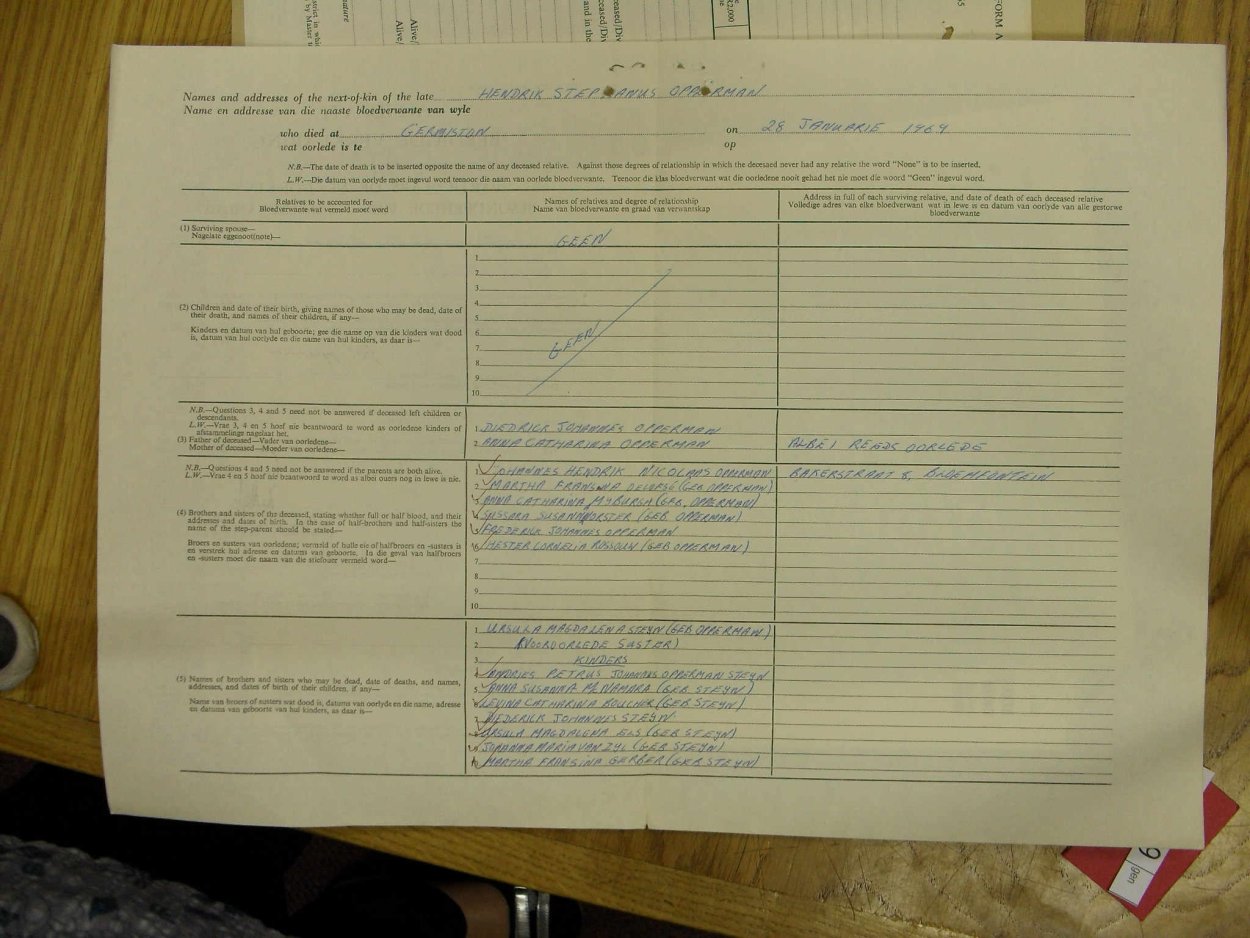 Names and addresses of the next-of-kin of the late HENDRIK STEPHANUS OPPERMAN
Name en addresse van die naaste bloedverwante van wyle
who died at GERMISTON on 28 JANUARIE 1969
wat oorlede is te op
N.B.—The date of death is to be inserted opposite the name of any deceased relative. Against those degrees of relationship in which the deceased never had any relative the word "None" is to be inserted.
L.W.—Die datum van oorlyde moet ingevul word teenoor die naam van oorlede bloedverwante. Teenoor die klas bloedverwant wat die oorledene nooit gehad het nie moet die woord "Geen" ingevul word.
Relatives to be accounted for
Bloedverwante wat vermeld moet word
Names of relatives and degree of relationship
Name van bloedverwante en graad van verwantskap
Address in full of each surviving relative, and date of death of each deceased relative
Volledige adres van elke bloedverwant wat in lewe is en datum van oorlyde van alle gestorwe
bloedverwante
(1) Surviving spouse—
Nagelate eggenoot(note)—
GEEN
(2) Children and date of their birth, giving names of those who may be dead, date of
their death, and names of their children, if any—
Kinders en datum van hul geboorte; gee die name op van die kinders wat dood
is, datum van hul oorlyde en die name van hul kinders, as daar is—
1
2
3
4
5
6
7
8
9
10
GEEN
N.B.—Questions 3, 4 and 5 need not be answered if deceased left children or
descendants.
L.W.—Vrae 3, 4 en 5 hoef nie beantwoord te word as oorledene kinders of
afstammelinge nagelaat het.
(3) Father of deceased—Vader van oorledene—
Mother of deceased—Moeder van oorledene—
1 DIEDRICK JOHANNES OPPERMAN
2 ANNA CATHARINA OPPERMAN
ALBEI REEDS OORLEDE
N.B.—Questions 4 and 5 need not be answered if the parents are both alive.
L.W.—Vrae 4 en 5 hoef nie beantwoord te word as albei ouers nog in lewe is nie.
(4) Brothers and sisters of the deceased, stating whether full or half blood, and their
addresses and dates of birth. In the case of half-brothers and half-sisters the
name of the step-parent should be stated—
Broers en susters van oorledene; vermeld of hulle eie of halfbroers en -susters is
en verstrek hul adresse en datums van geboorte. In die geval van halfbroers
en -susters moet die naam van die stiefouer vermeld word—
1 JOHANNES HENDRIK NICOLAAS OPPERMAN BAKERSTRAAT 8, BLOEMFONTEIN
2 MARTHA FRANSINA (GEB OPPERMAN)
3 ANNA CATHARINA MYBURGH (GEB. OPPERMAN)
4 SUSANNA VORSTER (GEB. OPPERMAN)
5 FREDERIK JOHANNES OPPERMAN
6 HESTER CORNELIA ROSSOUW (GEB OPPERMAN)
7
8
9
10
(5) Names of brothers and sisters who may be dead, date of deaths, and names,
addresses, and dates of birth of their children, if any—
Name van broers of susters wat dood is, datums van oorlyde en die name, adresse
en datums van geboorte van hul kinders, as daar is—
1 URSULA MAGDALENA STEYN (GEB. OPPERMAN)
2 (VOOROORLEDE SUSTER)
3 KINDERS
4 ANDRIES PETRUS JOHANNES OPPERMAN STEYN
5 ANNA SUSANNA McNAMARA (GEB STEYN)
6 LEVINA CATHARINA BOUCHER (GEB STEYN)
7 DIEDERICK JOHANNES STEYN
8 URSULA MAGDALENA ELS (GEB STEYN)
9 JOHANNA MARIA VAN ZYL (GEB STEYN)
10 MARTHA FRANSINA GERBER (GEB STEYN)